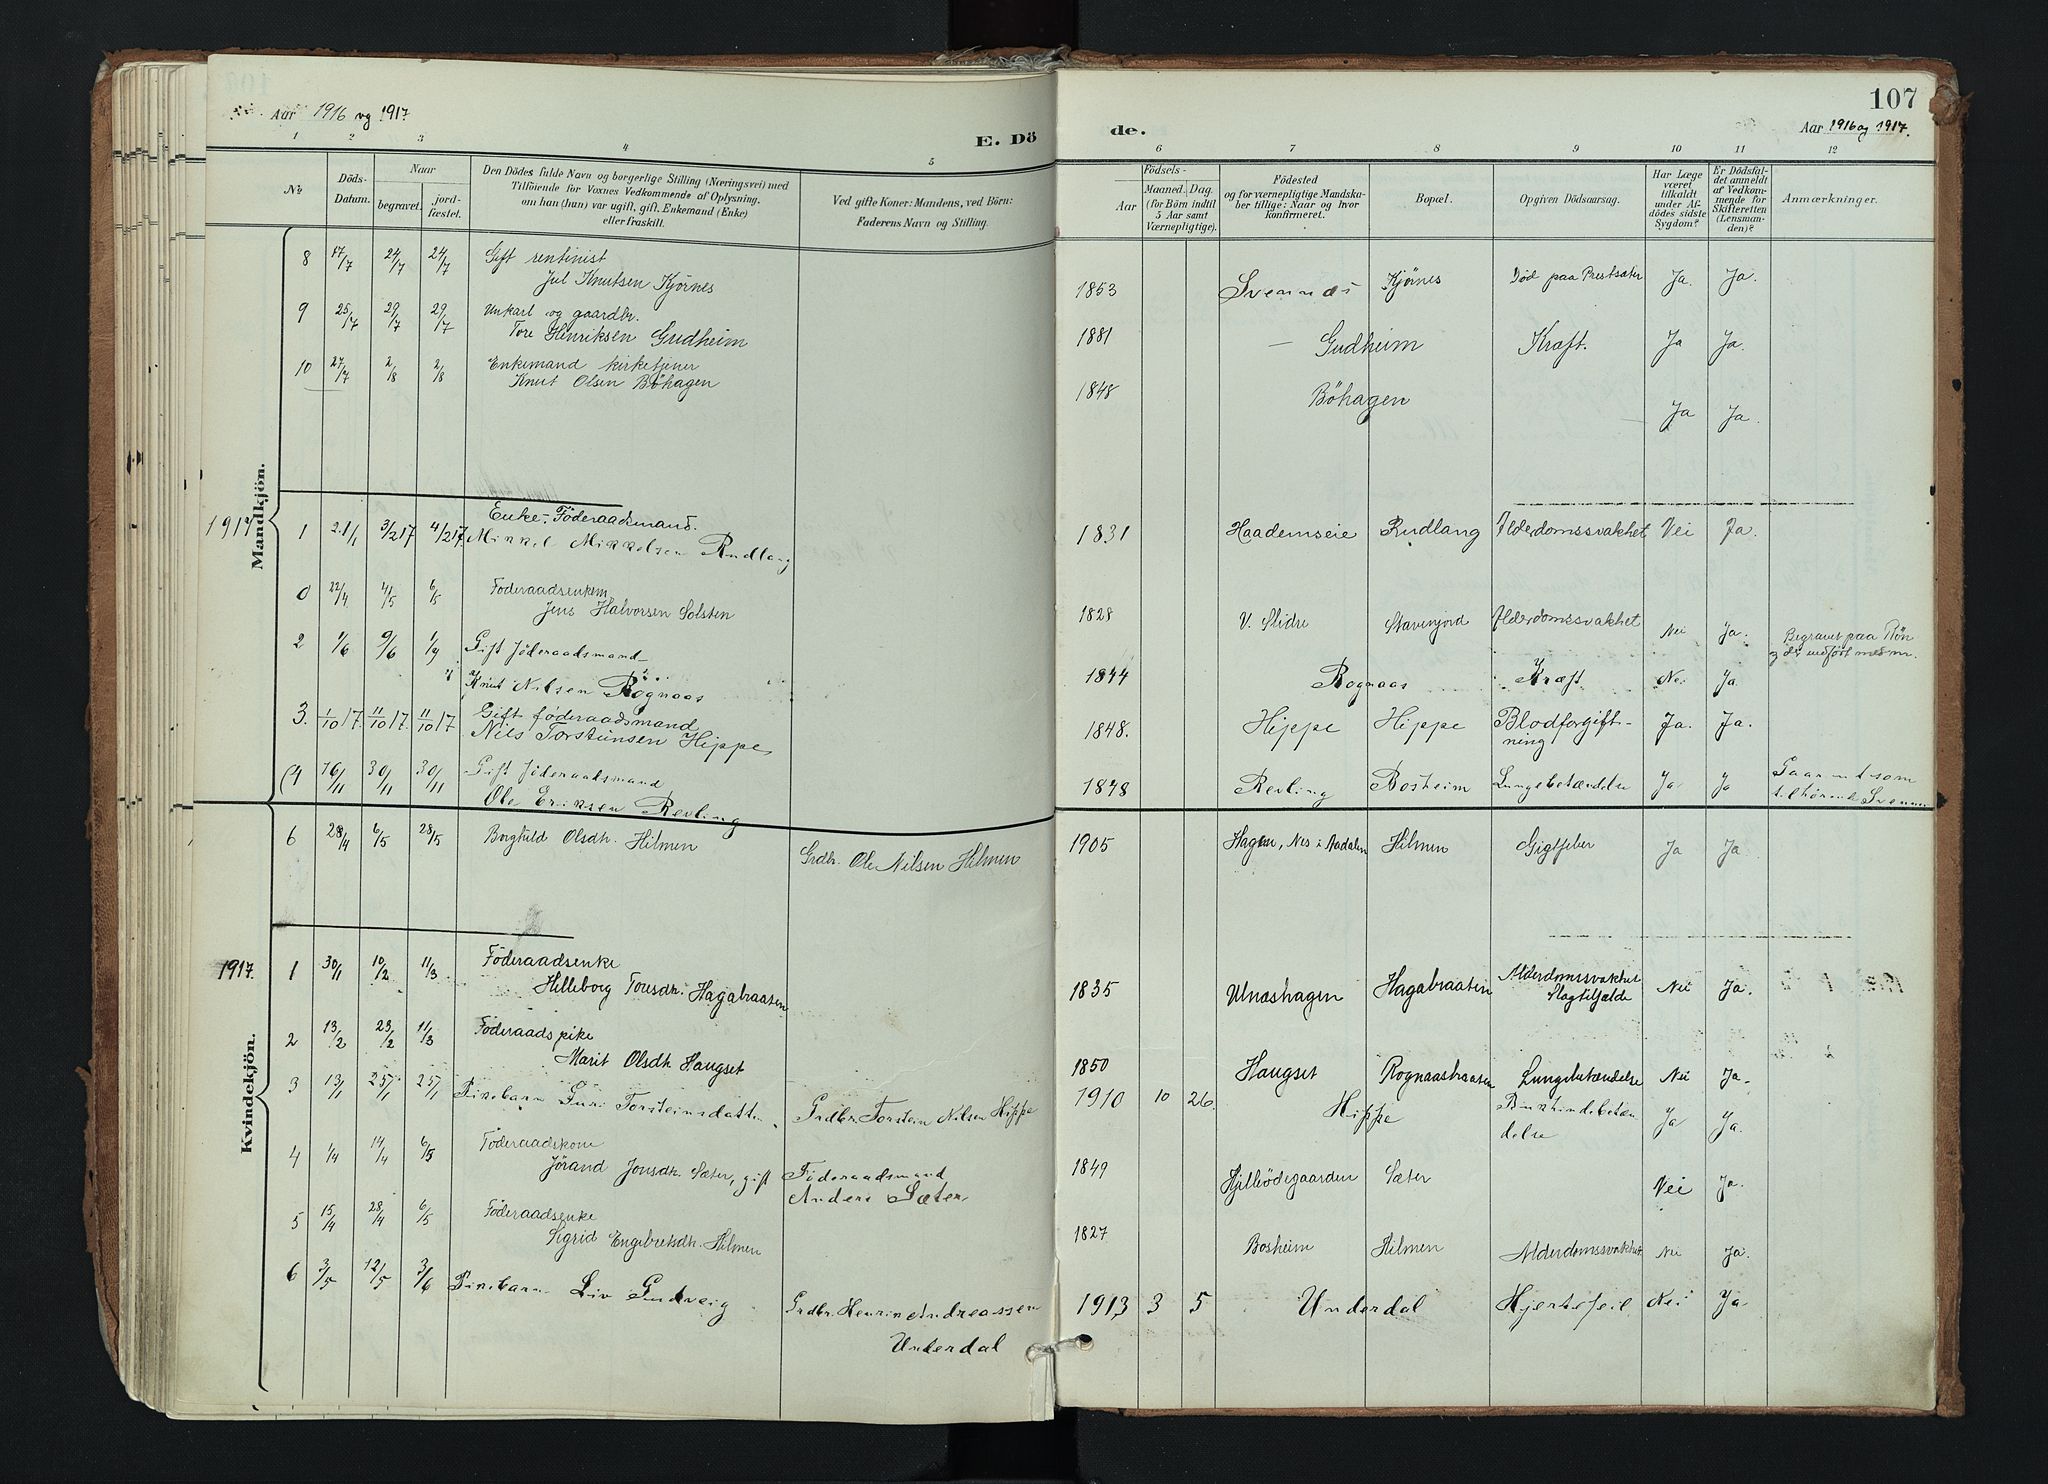 Aar 1916 og 1917
E. Dö
de.
107
Aar 1916 og 1917.
1 2 3 4 5 6 7 8 9 10 11 12
No
Döds-Datum.
Naar
begravet.
jord-fæstet.
Den Dödes fulde Navn og borgerlige Stilling (Næringsvei) med
Tilföiende for Voxnes Vedkommende af Oplysning,
om han (hun) var ugift, gift, Enkemand (Enke)
eller fraskilt.
Ved gifte Koner: Mandens, ved Börn:
Faderens Navn og Stilling.
Födsels-
Aar
Maaned. Dag.
(for Börn indtil
5 Aar samt
Værnepligtige).
Födested
og for værnepligtige Mandska-
ber tillige: Naar og hvor
konfirmeret.
Bopæl.
Opgiven Dödsaarsag.
Har Læge
været
tilkaldt
under Af-
dödes sidste
Sygdom?
Er Dödsfal-
det anmeldt
af Vedkom-
mende for
Skifteretten
(Lensman-
den)?
Anmærkninger.
Mandkjön.
8 17/7 24/7 24/7 Gift rentenist
Jul Knutsen Kjörnes
1853 Svennes Kjörnes Död paa Prestsæter Ja. Ja.
9 25/7 29/7 29/7 Unkarl og gaardbr.
Tore Henriksen Gudheim
1881 – Gudheim Kræft. Ja Ja.
10 27/7 2/8 2/8 Enkemand kirketjener
Knut Olsen Böhagen
1848 Böhagen Ja Ja.
1917
1 21/1 3/2 17 4/2 17 Enke-Föderaadsmand.
Mikkel Mikkelsen Rudlang
1831 Haademseie Rudlang Alderdomssvakhet Nei Ja.
0 22/4 4/5 6/5 Föderaadsenkem.
Jens Halvorsen Solsten
1828 V. Slidre Stavenjord Alderdomssvakhet Nei Ja. Begravet paa Røn
2 1/6 9/6 1/9 Gift föderaadsmand
Knut Nilsen Rögnaas
1844 Rognaas Kræft Nei Ja
3. 1/10 17. 11/10 17. 11/10 17 Gift föderaadsmand
Nils Torsteinsen Hippe
1848. Hippe Hippe Blodforgift-
ning Ja. Ja.
4 16/11 30/11 30/11 Gift föderaadsmand
Ole Eriksen Revling
1848 Revling Bosheim Lungebetændelse Ja Ja
Kvindekjön.
6 28/4 6/5 28/5 Borghild Olsdtr. Hilmen
Grdbr. Ole Nilsen Hilmen
1905 Hagen, Nes i Aadalen Hilmen Gigtfeber Ja Ja
1917.
1 30/1 10/2 11/3 Föderaadsenke
Hilleborg Toresdtr. Hagabraaten
1835 Ulnæshagen Hagabraaten Alderdomssvakhet
Slagtilfælde Nei Ja.
2 13/2 23/2 11/3 Föderaadspike
Marit Olsdtr. Haugset
1850 Haugset Rognaasbraaten Lungebetændelse Nei Ja.
3 13/1 25/1 25/1 Pikebarn Guri Torsteinsdatter.
Grdbr. Torstein Nilsen Hippe
1910 10 26. Hippe Brysthindebetæn
delse Ja Ja.
4 1/4 14/4 6/5 Föderaadskone
Jörand Jonsdtr. Sæter, gift Föderaadsmand
Anders Sæter
1849 Hjelbödegaarden Sæter Nei Ja.
5 15/4 28/4 6/5 Föderaadsenke
Sigrid Engebretsdtr. Hilmen
1827 Bosheim Hilmen Alderdomssvakhet Nei Ja.
6 3/5 12/5 3/6 Pikebarn Liv Gudveig
Grdbr. Henrik Andreassen
Underdal
1913 3 5 Underdal Hjertefeil Nei Ja